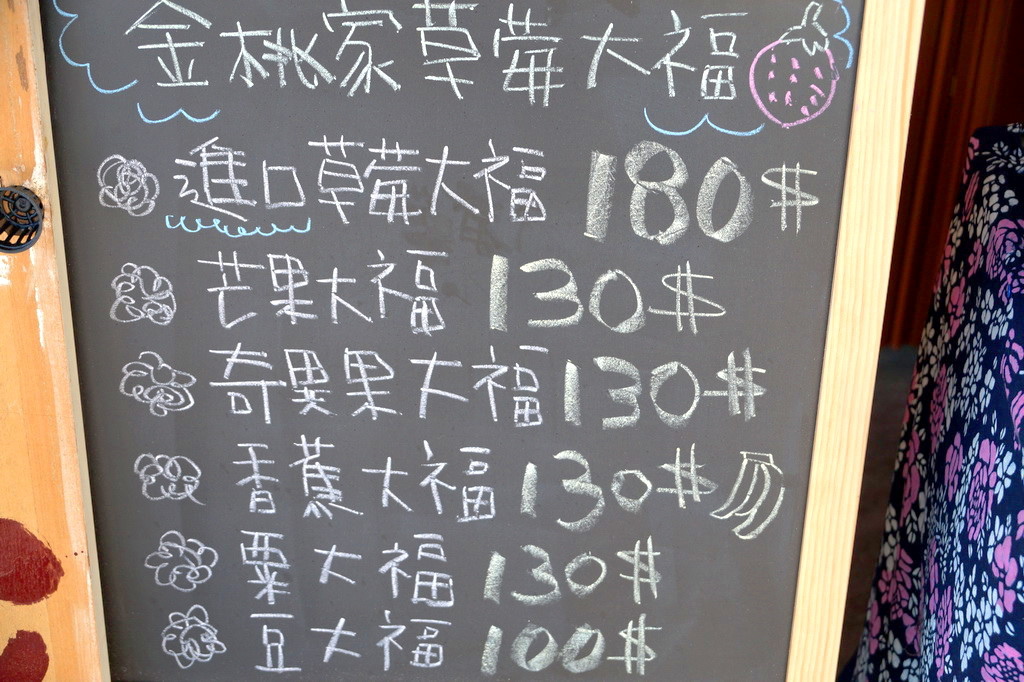 金桃家草莓大福
進口草莓大福 180$
芒果大福 130$
奇異果大福 130$
香蕉大福 130$
粟大福 130$
豆大福 100$